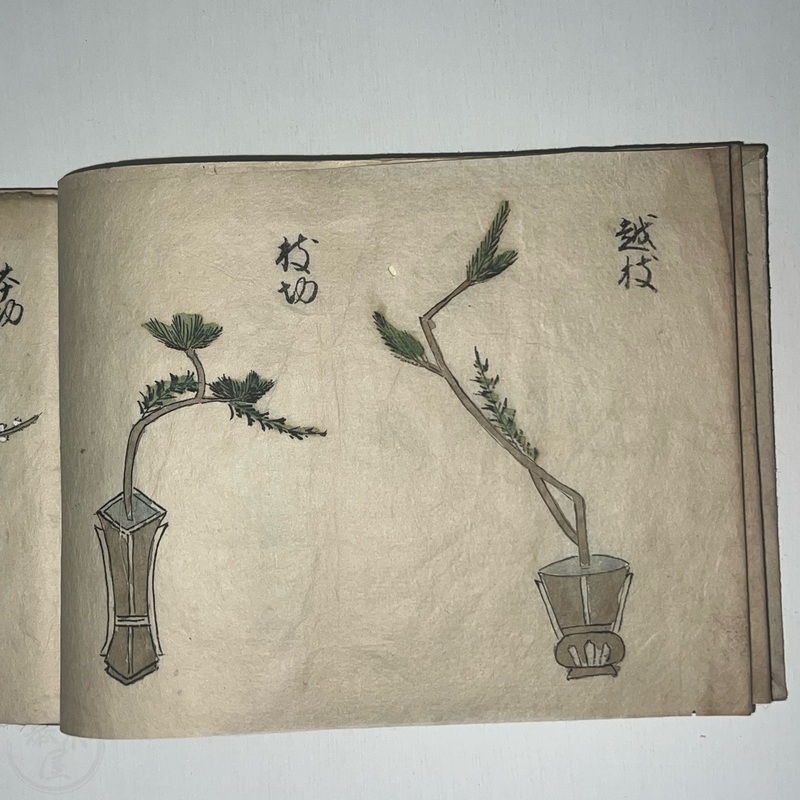 越枝
枝切